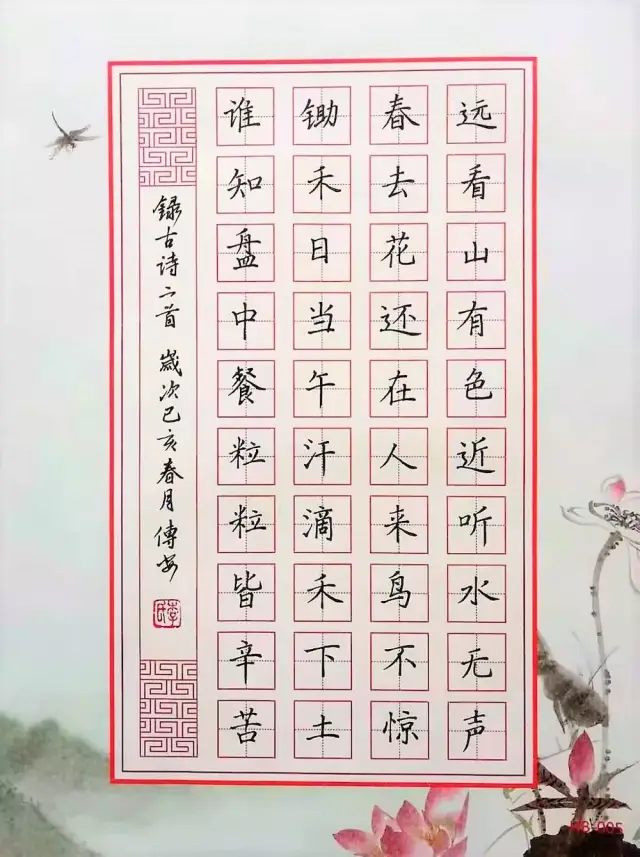 远看山有色近听水无声
春去花还在人来鸟不惊
锄禾日当午汗滴禾下土
谁知盘中餐粒粒皆辛苦
録古诗二首 歲次己亥春月傅安
李氏